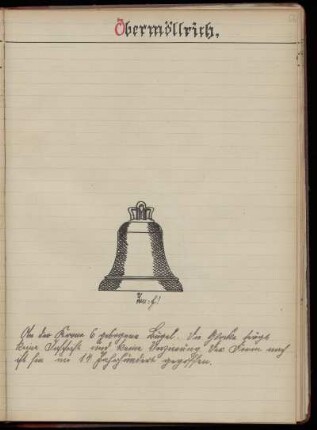 Obermöllrich.
An der Krone 6 gebogene Bügel. Die Glocke trägt
keine Inschrift und keine Verzierung. Der Form nach
ist sie im 14. Jahrhundert gegossen.